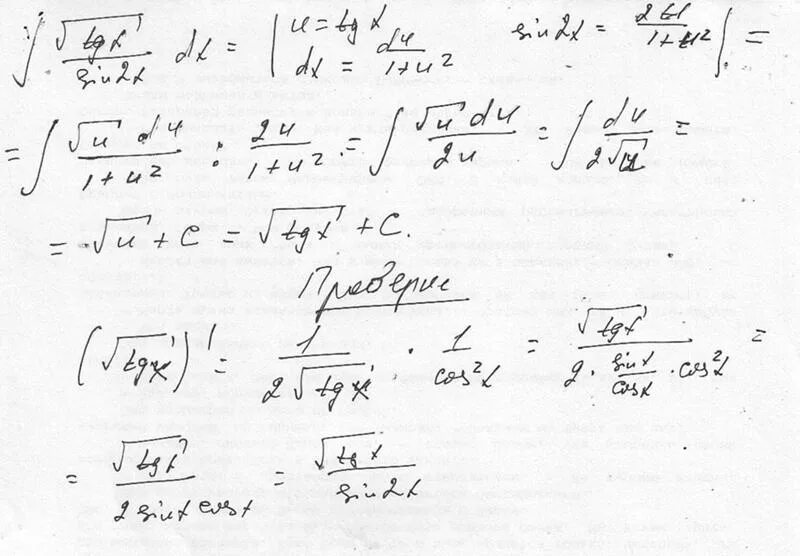 ∫ √(tg x) / sin 2x dx = | u = tg x   sin 2x = 2u / (1+u²) | =
dx = du / (1+u²)
= ∫ √u du / (1+u²) : 2u / (1+u²) = ∫ √u du / 2u = ∫ du / 2√u =
= √u + C = √(tg x) + C.
(√(tg x))' = 1 / (2√(tg x)) · 1 / cos²x = √(tg x) / (2 · sin x / cos x · cos²x) =
= √(tg x) / (2 sin x cos x) = √(tg x) / sin 2x